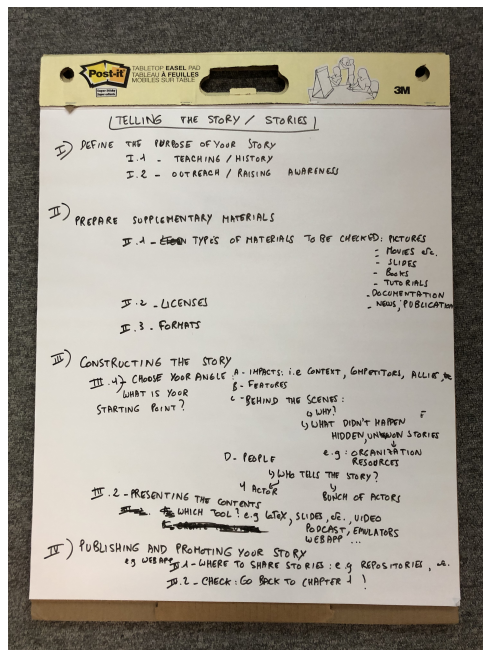 Post-it
TABLETOP EASEL PAD
TABLEAU À FEUILLES
MOBILES SUR TABLE
3M
TELLING THE STORY / STORIES
I) DEFINE THE PURPOSE OF YOUR STORY
I.1 - TEACHING / HISTORY
I.2 - OUTREACH / RAISING AWARENESS
II) PREPARE SUPPLEMENTARY MATERIALS
II.1 - TYPES OF MATERIALS TO BE CHECKED: PICTURES
- MOVIES etc.
- SLIDES
- BOOKS
- TUTORIALS
- DOCUMENTATION
- NEWS, PUBLICATION
II.2 - LICENSES
II.3 - FORMATS
III) CONSTRUCTING THE STORY
III.1) CHOOSE YOUR ANGLE: A - IMPACTS: i.e CONTEXT, COMPETITORS, ALLIES, etc
WHAT IS YOUR B - FEATURES
STARTING POINT? C - BEHIND THE SCENES:
WHY?
WHAT DIDN'T HAPPEN
HIDDEN, UNKNOWN STORIES
D - PEOPLE e.g: ORGANIZATION
RESOURCES
WHO TELLS THE STORY?
1 ACTOR BUNCH OF ACTORS
III.2 - PRESENTING THE CONTENTS
WHICH TOOL? e.g LaTeX, SLIDES, etc., VIDEO
PODCAST, EMULATORS
WEBAPP ...
IV) PUBLISHING AND PROMOTING YOUR STORY
eg WEBAPP IV.1 - WHERE TO SHARE STORIES: e.g REPOSITORIES, etc.
IV.2 - CHECK: GO BACK TO CHAPTER 1 !